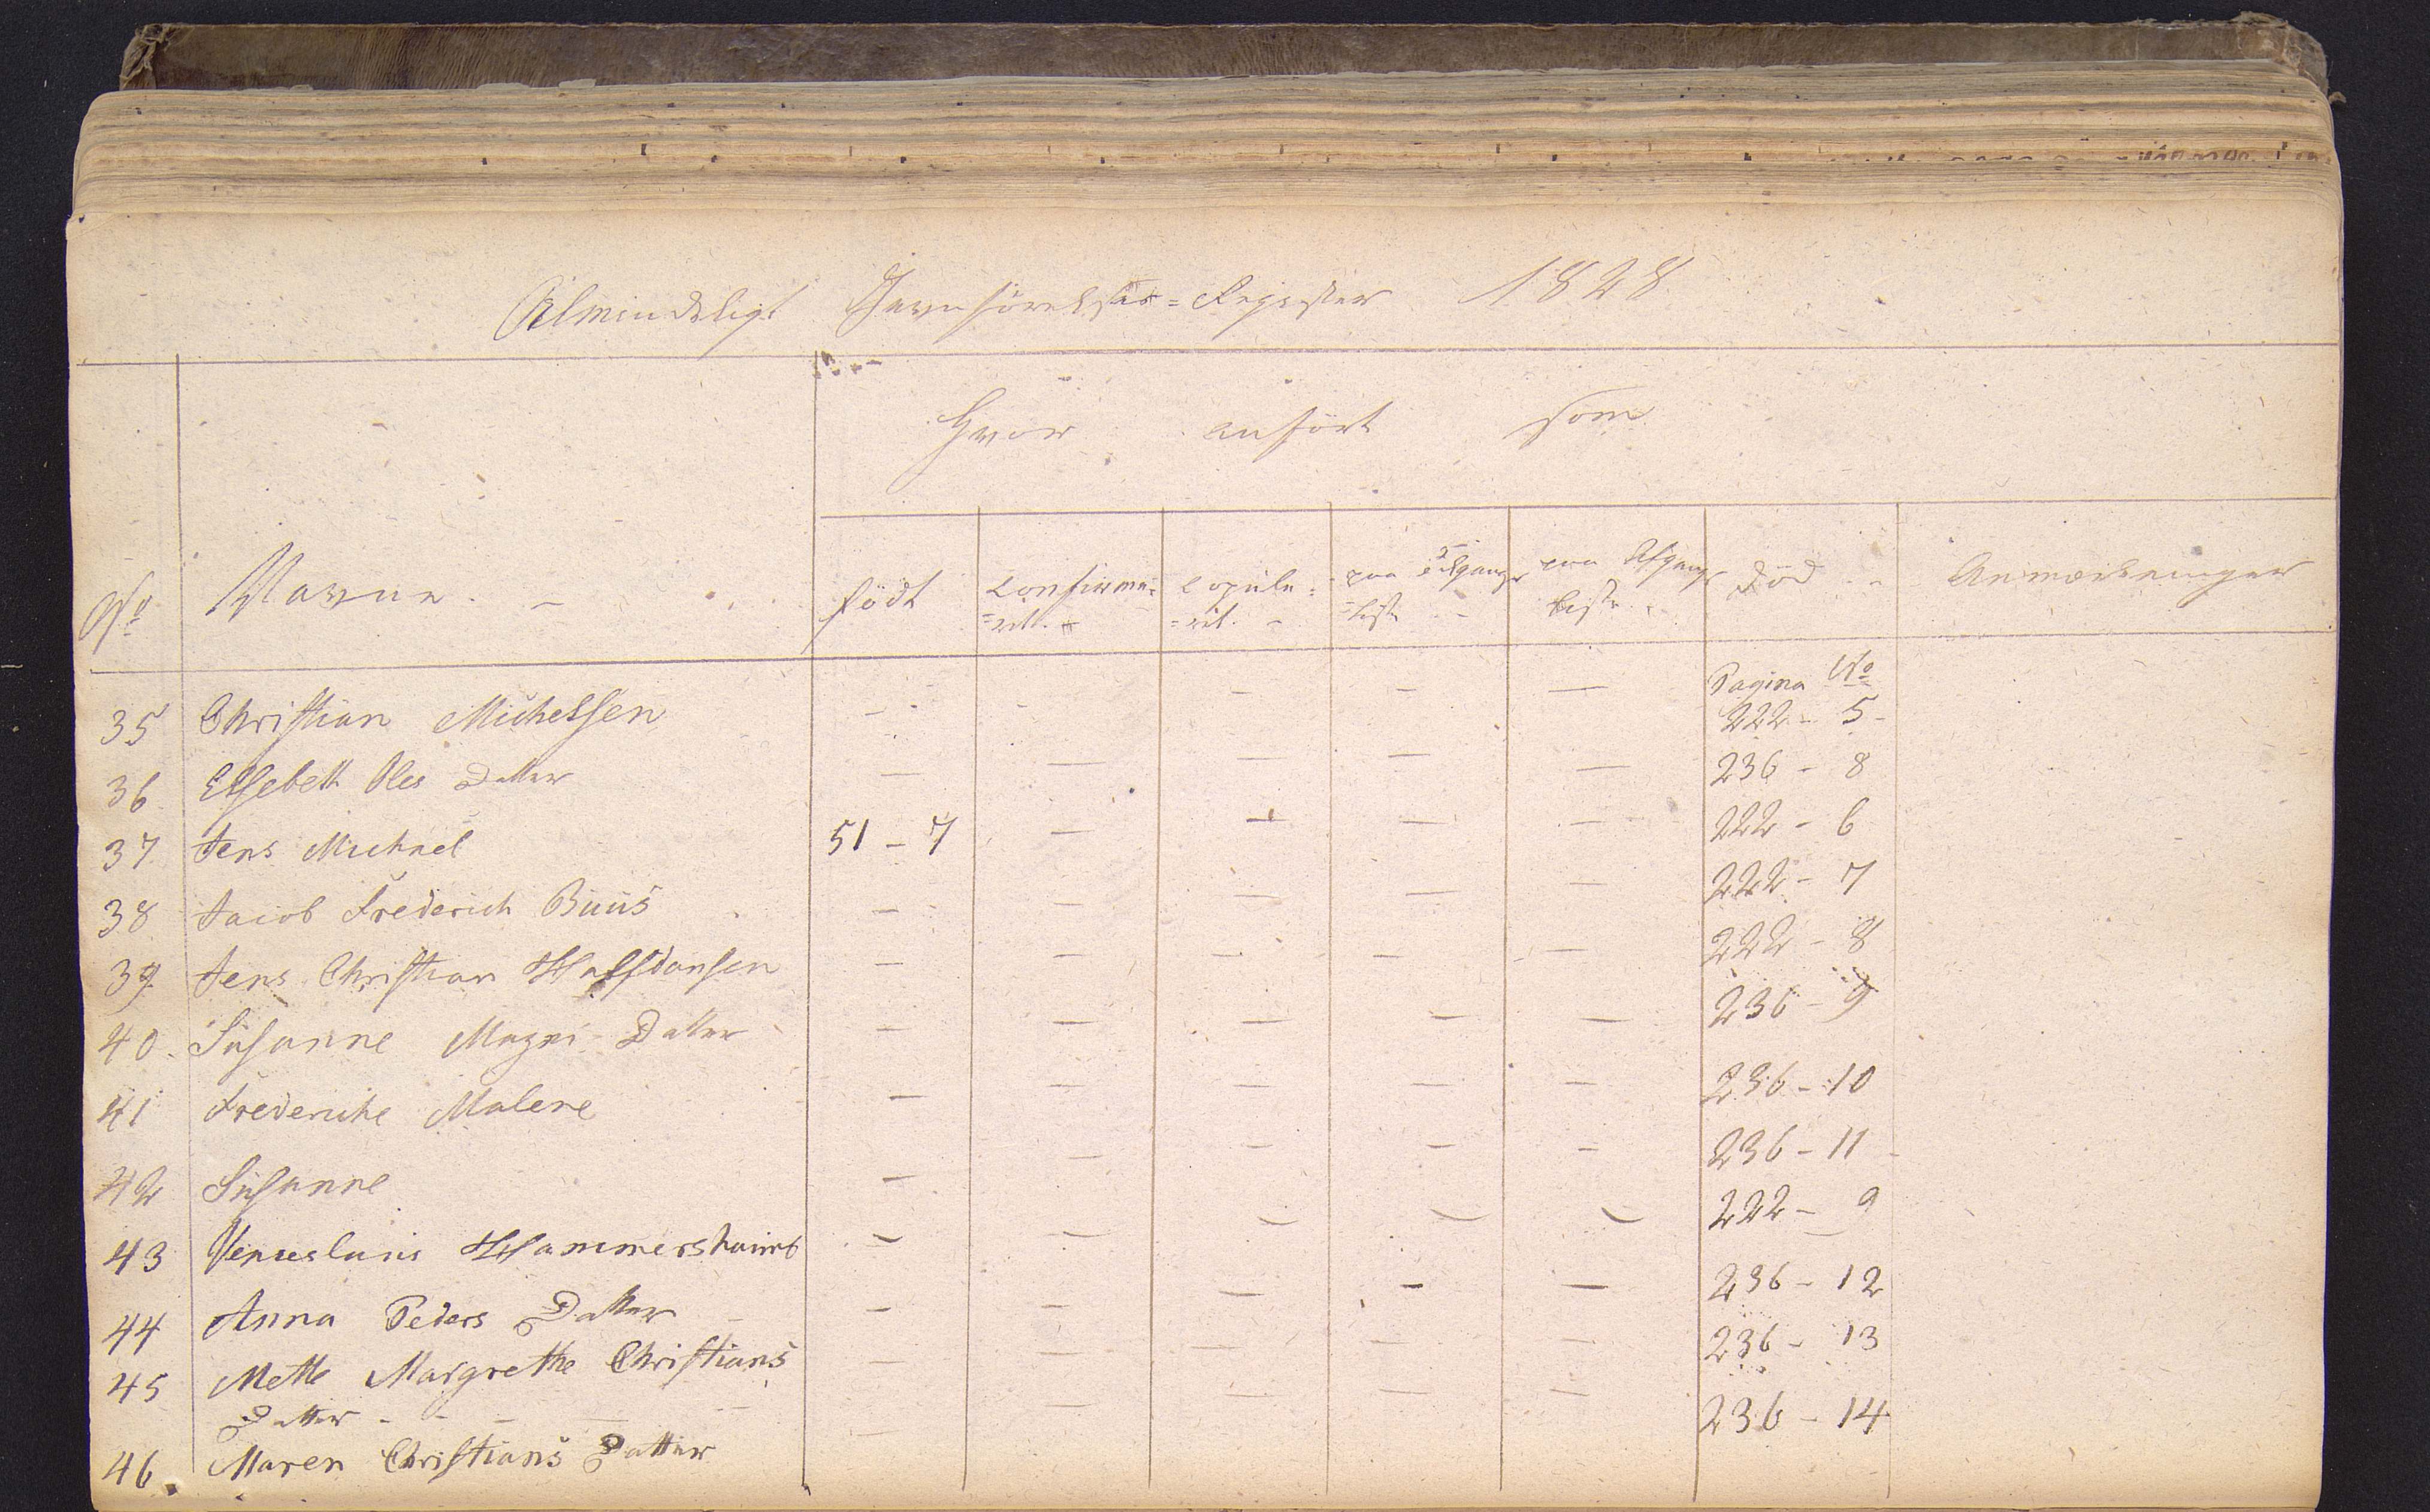 Almindeligt Jevnførelses=Register 1828
Hvor anført som
No Navne. - født confirme= =ret. - copule= =ret. - paa Tilgangs =liste - paa Afgangs liste - død - Anmærkninger
Pagina No
35 Christian Michelsen - - - - - 222 - 5 -
36 Elsebeth Oles Datter - - - - - 236 - 8
37 Jens Michael 51 - 7 - - - - 222 - 6
38 Jacob Frederich Buus - - - - - 222 - 7
39 Jens Christian Halfdansen - - - - - 222 - 8
40. Susanne Magni Datter - - - - - 236 - 9
41 Frederiche Malene - - - - - 236 - 10
42 Susanne - - - - - 236 - 11
43 Venceslaus Hammershaimb - - - - - 222 - 9
44 Anna Peders Datter - - - - - 236 - 12
45 Mette Margrethe Christians - - - - - 236 - 13
Datter - - - - -
46. Maren Christians Datter - - - - - 236 - 14